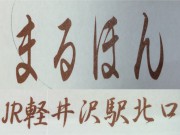 まるほん
JR軽井沢駅北口